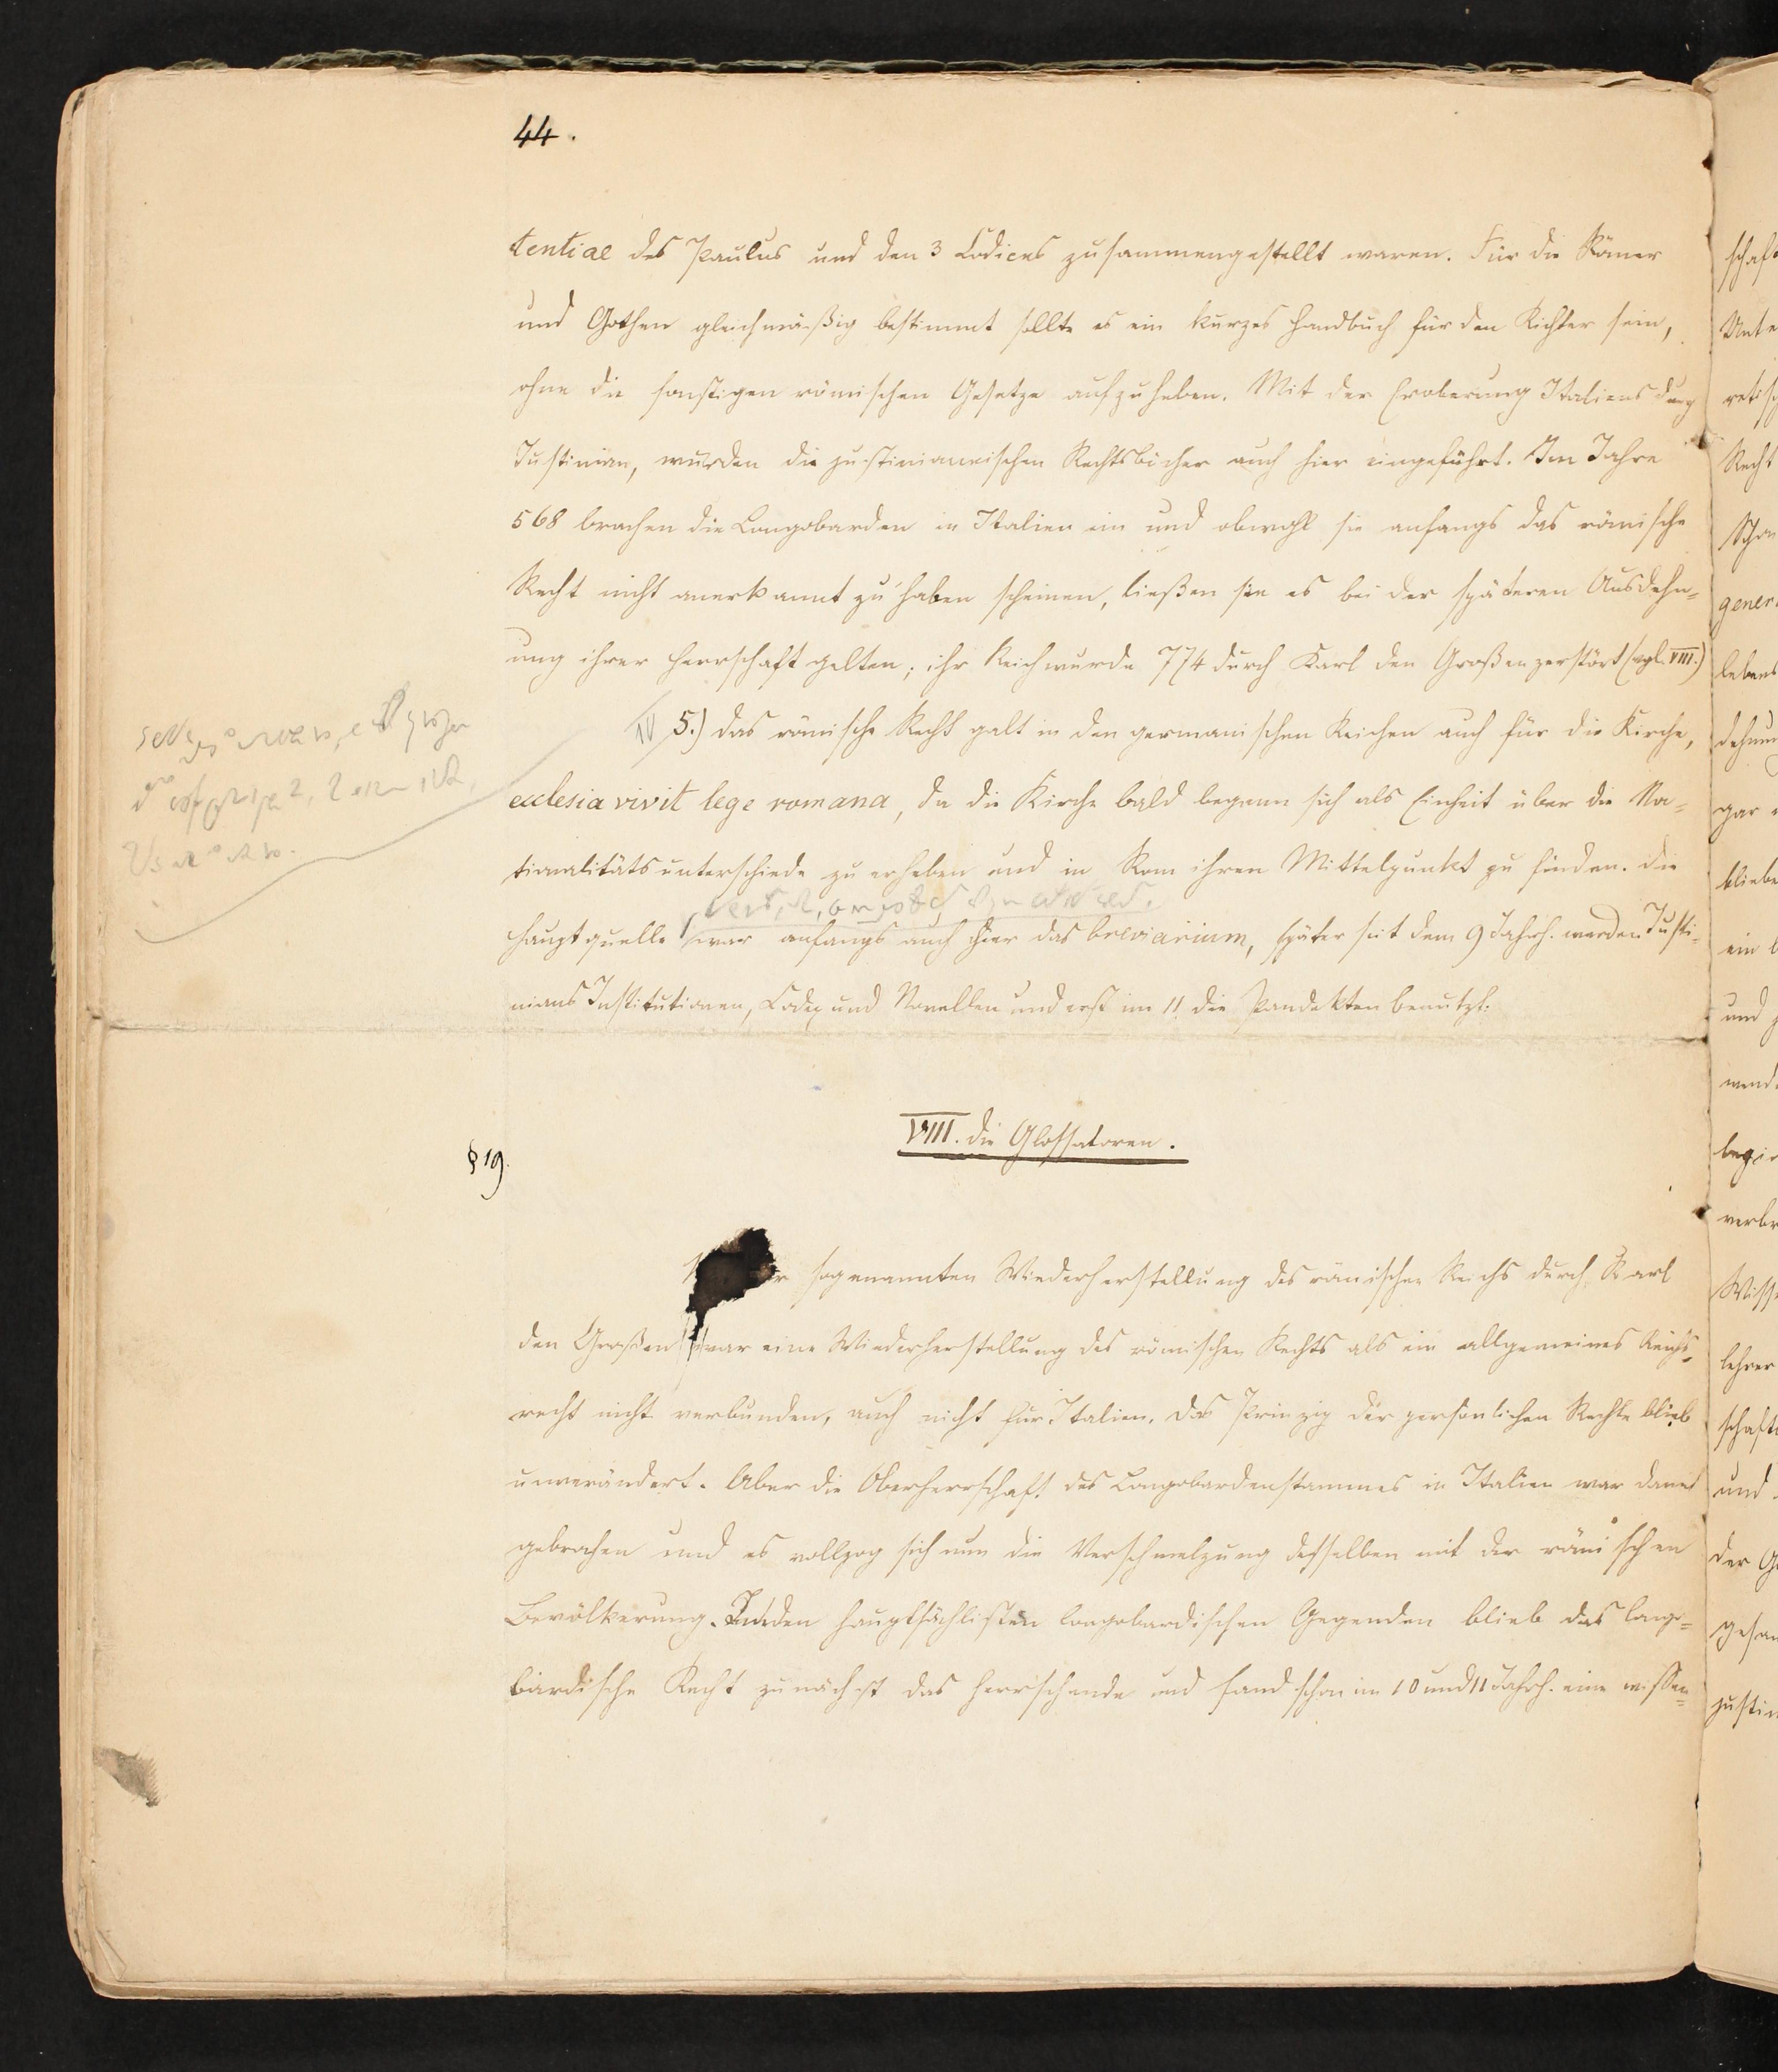 44.
tentiae des Paulus und den 3 Codices zusammengestellt waren. Für die Römer
und Gothen gleichmäßig bestimmt sollte es ein kurzes Handbuch für den Richter sein,
ohne die sonstigen römischen Gesetze aufzuheben. Mit der Eroberung Italiens durch
Justinian, wurden die justinianischen Rechtsbücher auch hier eingeführt. Im Jahre
568 brachen die Longobarden in Italien ein und obwohl sie anfangs das römische
Recht nicht anerkannt zu haben scheinen, ließen sie es bei der späteren Ausdehn=
ung ihrer Herrschaft gelten; ihr Reich wurde 774 durch Karl den Großen zerstört (vgl. VIII.)
IV 5.) Das römische Recht galt in den germanischen Reichen auch für die Kirche,
ecclesia vivit lege romana, da die Kirche bald begann sich als Einheit über die Na=
tionalitätsunterschiede zu erheben und in Rom ihren Mittelpunkt zu finden. Die
Hauptquelle war anfangs auch hier das breviarium, später seit dem 9 Jahrh. werden Justi=
nians Institutionen, Codex und Novellen und erst im 11. die Pandekten benutzt.
VIII. Die Glossatoren.
§ 19.
sogenannten Wiederherstellung des römischen Reichs durch Karl
den Großen war eine Wiederherstellung des römischen Rechts als ein allgemeines Reichs=
recht nicht verbunden, auch nicht für Italien. Das Prinzip der persönlichen Rechte blieb
unverändert. Aber die Oberherrschaft des Longobardenstammes in Italien war damit
gebrochen und es vollzog sich nun die Verschmelzung desselben mit der römischen
Bevölkerung. In den hauptsächlichsten longobardischen Gegenden blieb das longo=
bardische Recht zunächst das herrschende und fand schon im 10 und 11 Jahrh. eine wissen=